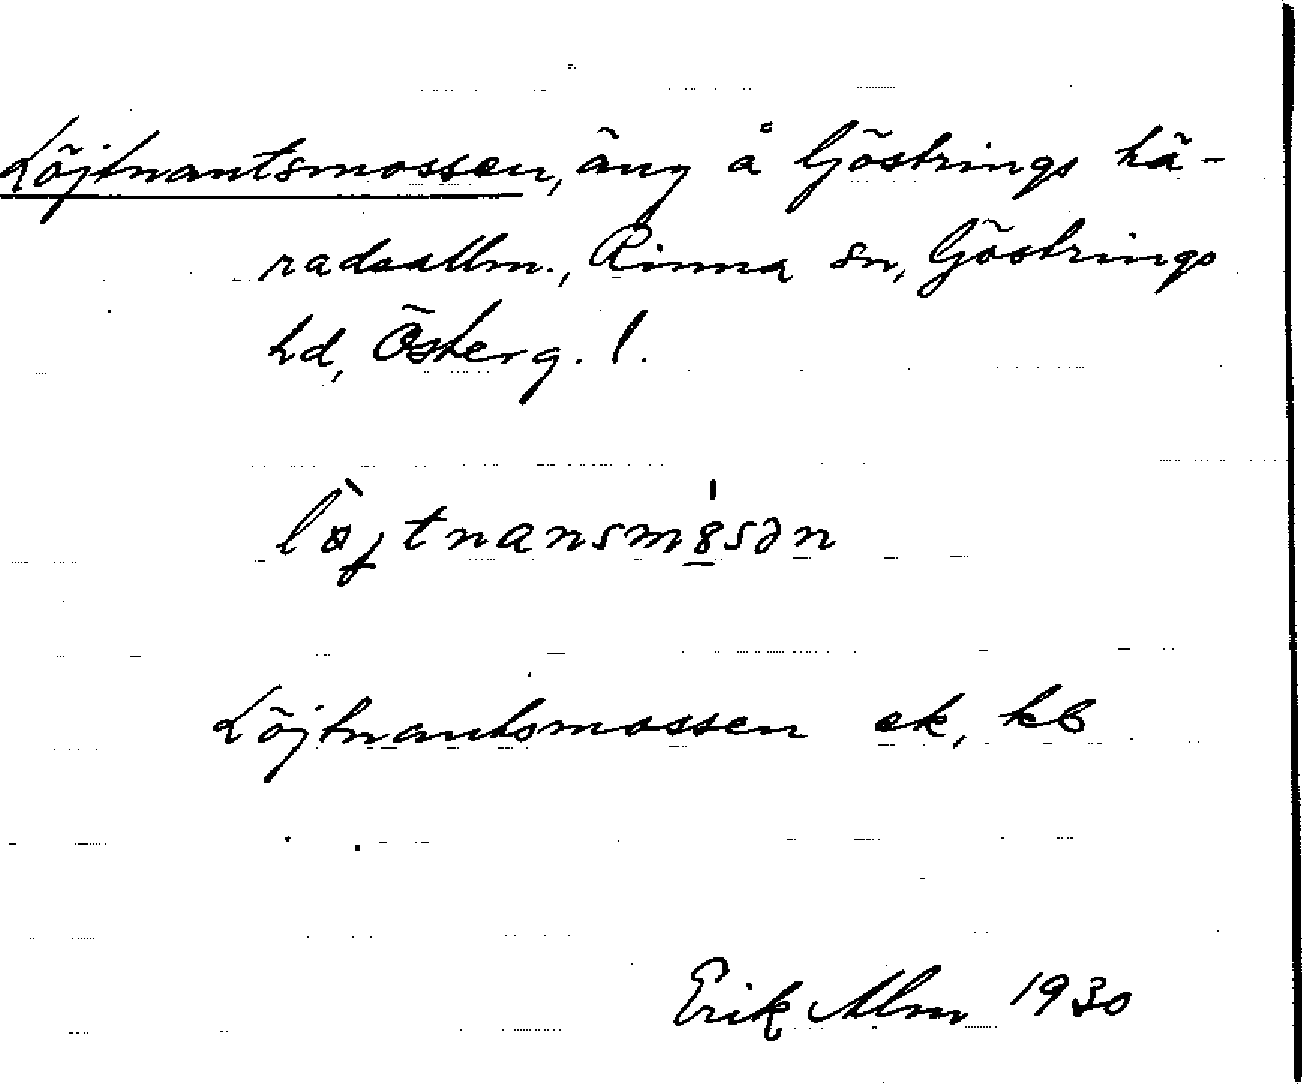 Löjtnantsmossen, äng å Göstrings hä-
radsallm., Rinna sn, Göstrings
hd, Österg. l.
löjtnansm8sən
Löjtnantsmossen ek, kb
Erik Alm 1930